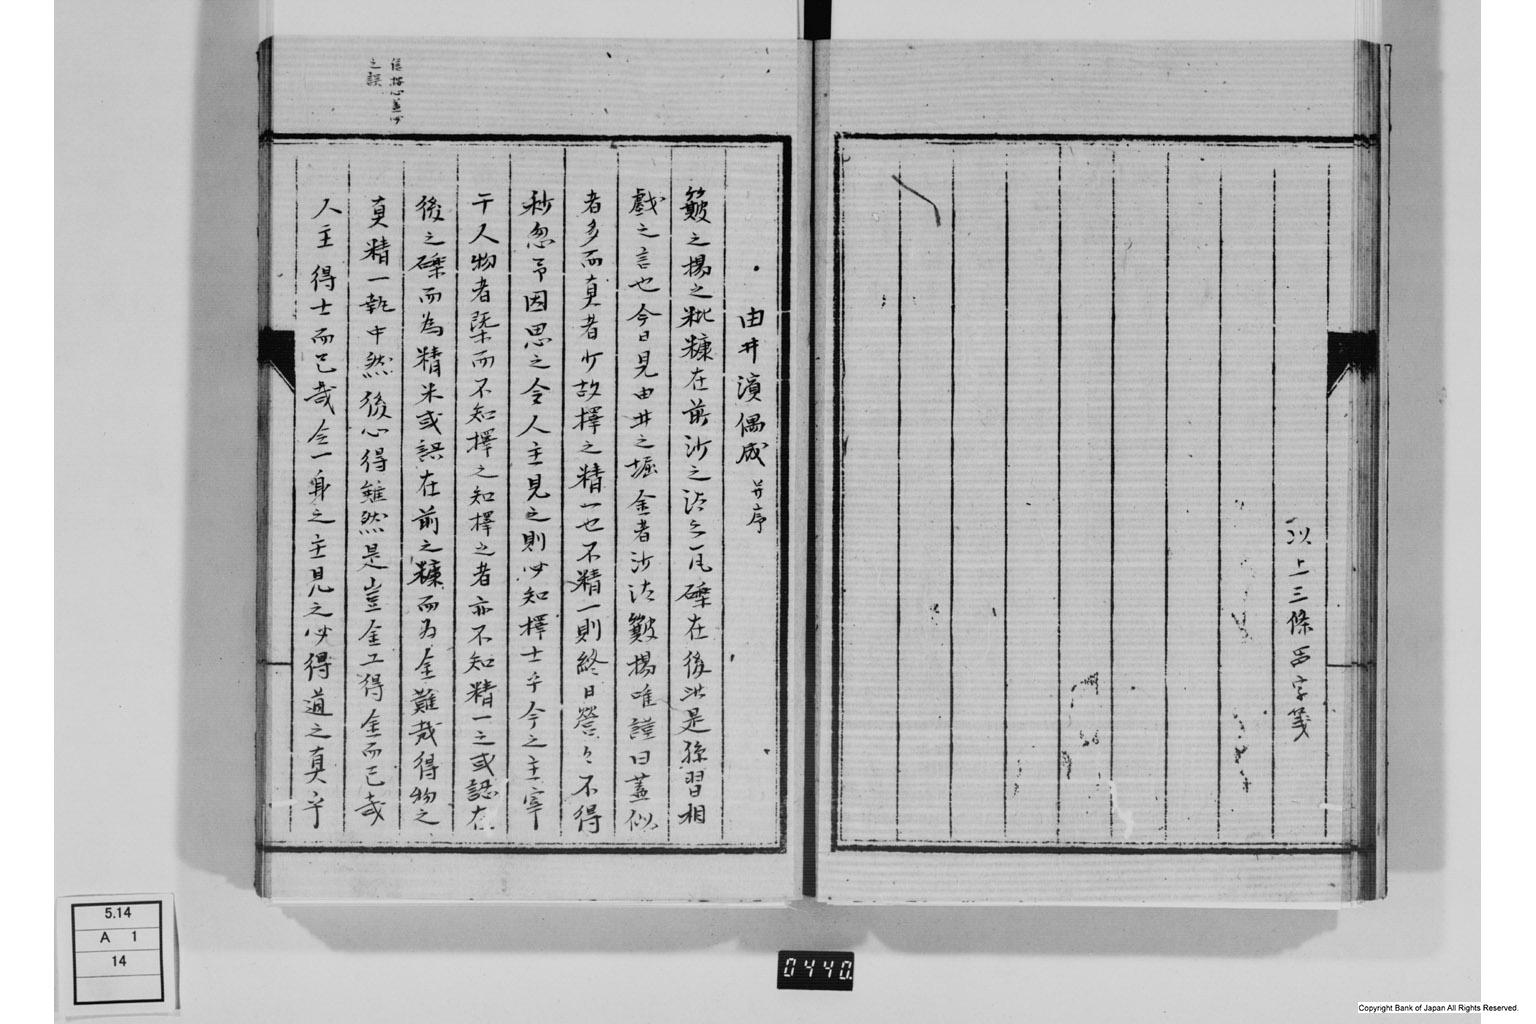 以上三條四字箋
由井濱偶成 并序
簸之揚之粃糠在前沙之汰之瓦礫在後此是孫習相
戲之言也今日見由井之堀金者沙汰簸揚唯謹曰蓋似
者多而真者少故擇之精一也不精一則終日營々不得
秒忽予因思之令人主見之則必知擇士乎今之主宰
于人物者槩而不知擇之知擇之者亦不知精一之或認在
後之礫而為精米或誤在前之糠而為金難哉得物之
真精一執中然後心得雖然是豈金工得金而已哉
人主得士而已哉令一身之主見之必得道之真乎
之誤
5.14
A 1
14
0440.
Copyright Bank of Japan All Rights Reserved.